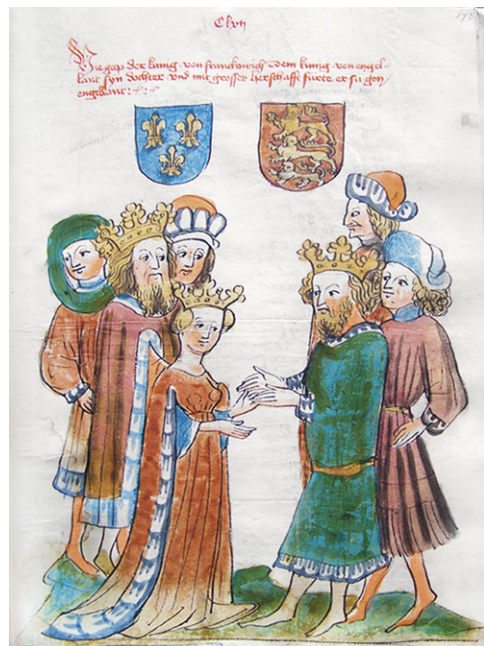 Clvii
Hie gap der kung von franckenrich dem kung von engel
lant syn dochter vnd mit grosser herschafft furte er su gon
engelant